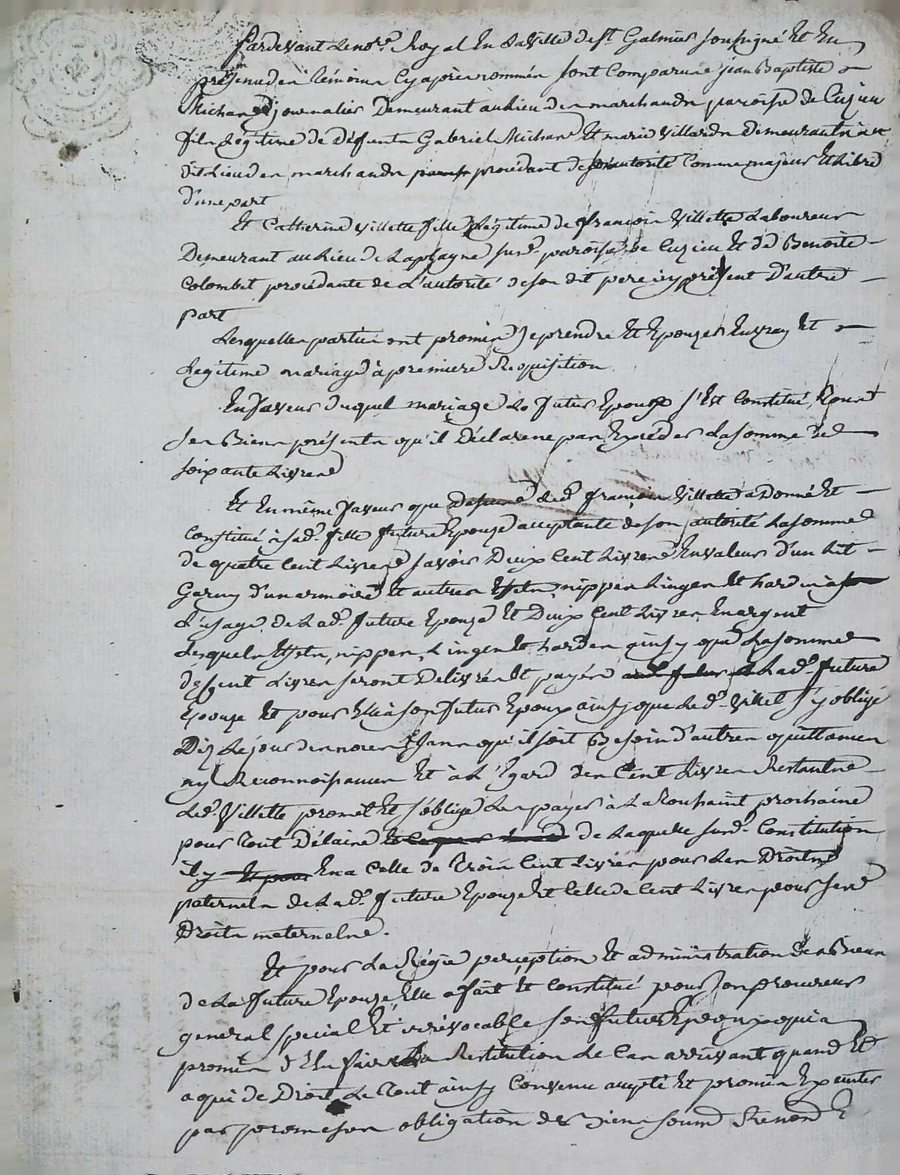 Pardevant le no.re Royal En la ville de st Galmier soussigné Et En
présence des témoins cy après nommés sont comparus jean Baptiste
Michard journalier Demeurant au lieu des marchands paroisse de Cuzieu
fils légitime de Défunts Gabriel Michard Et marie Villards Demeurants au
dit lieu des marchands procédant de son autorité comme majeur Et libre
d'une part
Et Catherine Villette fille légitime de françois Villette Laboureur
Demeurant au lieu de Laplagne susd. paroisse de Cuzieu Et de Benoite
Colombet procédante de L'autorité de son dit pere icy présent D'autre
part
Lesquelles parties ont promis se prendre Et Epouzer En vray Et
Légitime mariage à première Réquisition
En faveur duquel mariage Le futur Epoux s'Est Constitué tous
ses Biens présents qu'il Déclare ne pas Excéder La somme de
soixante Livres
Et En même faveur que led. françois Villette a Donné Et
Constitué à sad. fille future Epouze acceptante de son autorité La somme
de quatre Cent Livres savoir Deux Cent Livres En valeur d'un Lit
Garny d'un armoire Et autres Effets, nippes Linges Et hardes a
L'usage de Lad. future Epouze Et Deux Cent Livres En argent
Lesquels Effets, nippes, Linges Et hardes ainsy que La somme
de Cent Livres seront Délivrés Et payés a Lad. future
Epouze Et pour Elle à son futur Epoux ainsy que Led. Villet s'y oblige
Dis Le jour des noces sans qu'il soit Besoin d'autres quittances
ny Reconnoissances Et à L'Egard des Cent Livres Restants
Led. Villette promet Et s'oblige Les payer à La toussaint prochaine
pour tout Délai de Laquelle susd. Constitution
il y En a Celle de trois Cent Livres pour Les Droits
paternels de Lad. future Epouze Et Celle de Cent Livres pour ses
Droits maternels.
Et pour La Régie perception Et administration des Biens
de La future Epouze, Elle a fait Et Constitué pour son procureur
général spécial Et irrévocable son futur Epoux qui a
promis d'En faire La Restitution Le Cas arrivant quand Et
a qui de Droit Le tout ainsy Convenu accepté Et promis Exécuter
par obligation de Biens soumd Renond E